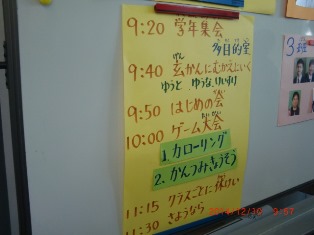 9:20 学年集会
多目的室
9:40 玄かんにむかえにいく
げん
ゆうと ゆうな
9:50 はじめの会
10:00 ゲーム大会
1.カローリング
2.かんつみきょうそう
11:15 クラスごとに休けい
11:30 さようなら
3